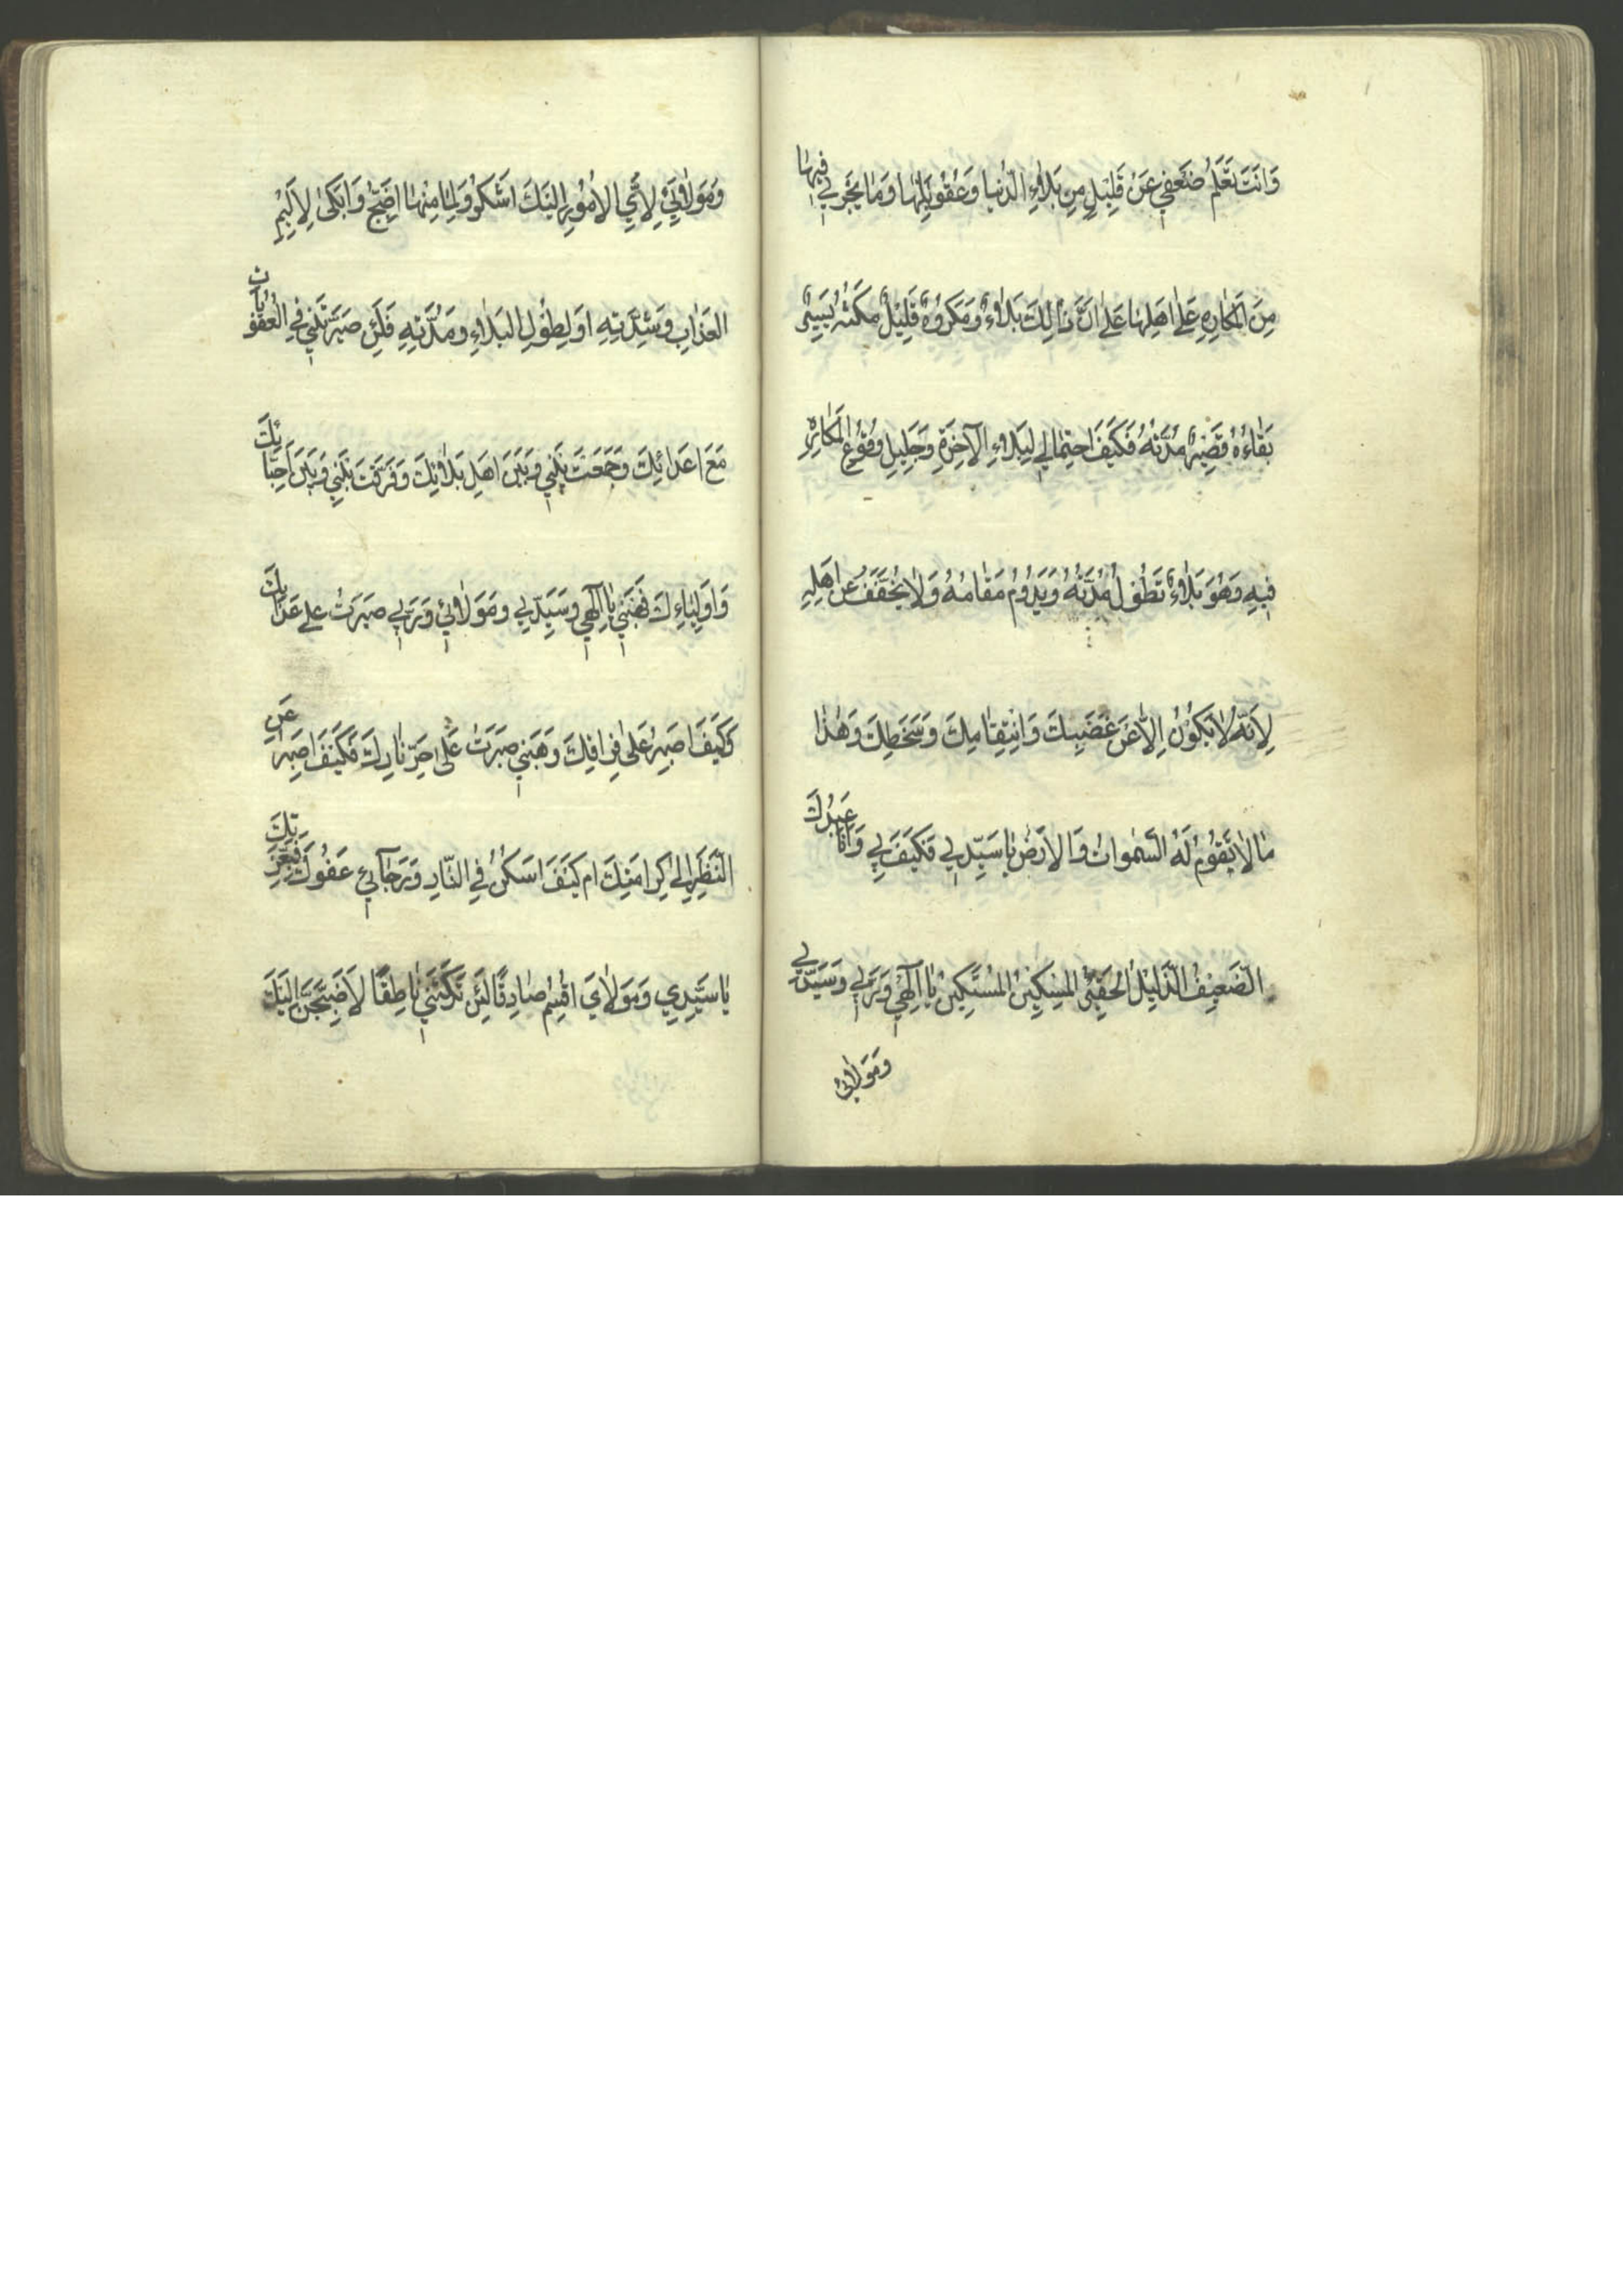 وَاَنْتَ تَعْلَمُ ضَعْفِي عَنْ قَلِيْلٍ مِنْ بَلَاءِ الدُّنْيا وَعُقُوبَاتِهَا وَمَا يَجْرِي فِيهَا
مِنَ الْمَكَارِهِ عَلَى اَهْلِهَا عَلى اَنَّ ذَالِكَ بَلَاءٌ وَمَكْرُوهٌ قَلِيْلٌ مَكْثُهُ يَسِيرٌ
بَقَاءُهُ قَصِيرٌ مُدَّتُهُ فَكَيْفَ احْتِمَالِي لِبَلَاءِ الآخِرَةِ وَجَلِيلِ وُقُوعِ الْمَكَارِهِ
فِيهِ وَهُوَ بَلَاءٌ تَطُولُ مُدَّتُهُ وَيَدُومُ مَقَامُهُ وَلَا يُخَفَّفُ عَنْ اَهْلِهِ
لِاَنَّهُ لَا يَكُوْنُ اِلَّا عَنْ غَضَبِكَ وَانْتِقَامِكَ وَسَخَطِكَ وَهٰذَا
مَا لَا تَقُوْمُ لَهُ السَّمٰوَاتُ وَالْاَرْضُ يَا سَيِّدِي فَكَيْفَ بِي وَاَنَا عَبْدُكَ
الضَّعِيْفُ الذَّلِيْلُ الْحَقِيْرُ الْمِسْكِيْنُ الْمُسْتَكِيْنُ يَا اِلٰهِي وَرَبِّي وَسَيِّدِي
وَمَوْلَائِي
وَمَوْلَائِي لِاَيِّ الْاُمُوْرِ اِلَيْكَ اَشْكُوْ وَلِمَا مِنْهَا اَضِجُّ وَاَبْكِي لِاَلِيْمِ
الْعَذَابِ وَشِدَّتِهِ اَوْ لِطُوْلِ الْبَلَاءِ وَمُدَّتِهِ فَلَئِنْ صَيَّرْتَنِي فِي الْعُقُوْبَاتِ
مَعَ اَعْدَائِكَ وَجَمَعْتَ بَيْنِي وَبَيْنَ اَهْلِ بَلَائِكَ وَفَرَّقْتَ بَيْنِي وَبَيْنَ اَحِبَّائِكَ
وَاَوْلِيَاءِكَ فَهَبْنِي يَا اِلٰهِي وَسَيِّدِي وَمَوْلَائِي وَرَبِّي صَبَرْتُ عَلى عَذَابِكَ
فَكَيْفَ اَصْبِرُ عَلَى فِرَاقِكَ وَهَبْنِي صَبَرْتُ عَلَى حَرِّ نَارِكَ فَكَيْفَ اَصْبِرُ عَنِ
النَّظَرِ اِلَى كَرَامَتِكَ اَمْ كَيْفَ اَسْكُنُ فِي النَّارِ وَرَجَآئِي عَفْوُكَ فَبِعِزَّتِكَ
يَا سَيِّدِي وَمَوْلَايَ اُقْسِمُ صَادِقًا لَئِنْ تَرَكْتَنِي نَاطِقًا لَاَضِجَّنَّ اِلَيْكَ